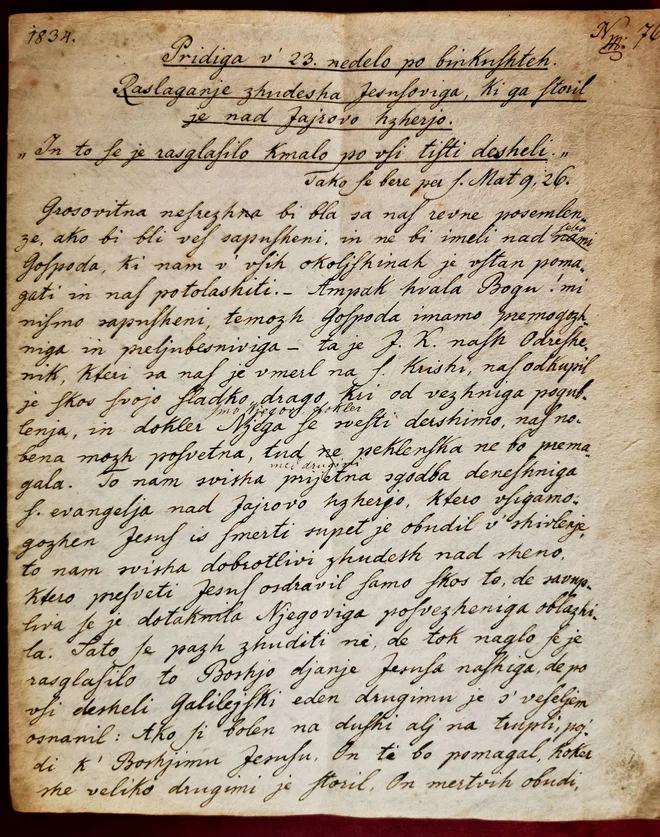 1834.
Pridiga v' 23. nedelo po binkushteh.
Raslaganje zhudesha Jesusoviga, ki ga ſtoril
je nad Jajrovo hzherjo.
„In to ſe je rasglaſilo kmalo po vſi tiſti desheli.„
Tako ſe bere per ſ. Mat 9, 26.
Grosovitna neſrezhna bi bla sa naſ revne posemlen-
ze, ako bi bli veſ sapuſheni, in ne bi imeli nad ſebo
Goſpoda, ki nam v' vſih okoljſhinah je vſtan poma-
gati in naſ potolashiti. – Ampak hvala Bogu! mi
niſmo sapuſheni, temozh Goſpoda imamo premogozh-
niga in preljubesniviga – ta je J. K. naſh Odreſhe-
nik, kteri sa naſ je vmerl na ſ. Krishi, naſ odkupil
je ſkos ſvojo ſladko, drago kri od vezhniga pogub-
lenja, in dohler Njega ſe sveſti dershimo, naſ no-
bena mozh poſvetna, tud ne peklenſka ne bo prema-
gala. To nam svisha med drugimi prijetna sgodba deneſhniga
ſ. evangelja nad Jajrovo hzherjo, ktero vſigamo-
gozhen Jesuſ is ſmerti supet je obudil v' shivlenje,
to nam svisha dobrotlivi zhudesh nad sheno,
ktero preſveti Jesuſ osdravil ſamo ſkos to, de savup-
liva ſe je dotaknila Njegoviga poſvezheniga oblazhi-
la. Tato ſe pazh zhuditi ni, de tok naglo ſe je
rasglaſilo to Boshjo djanje Jesuſa naſhiga, de po
vſi desheli Galilejſki eden drugimu je s' veſeljem
osnanil: Ako ſi bolen na duſhi alj na trupli, poj-
di k' Boshjimu Jesuſu. On te bo pomagal, koker
she veliko drugimi je ſtoril. On mertvih obudi,